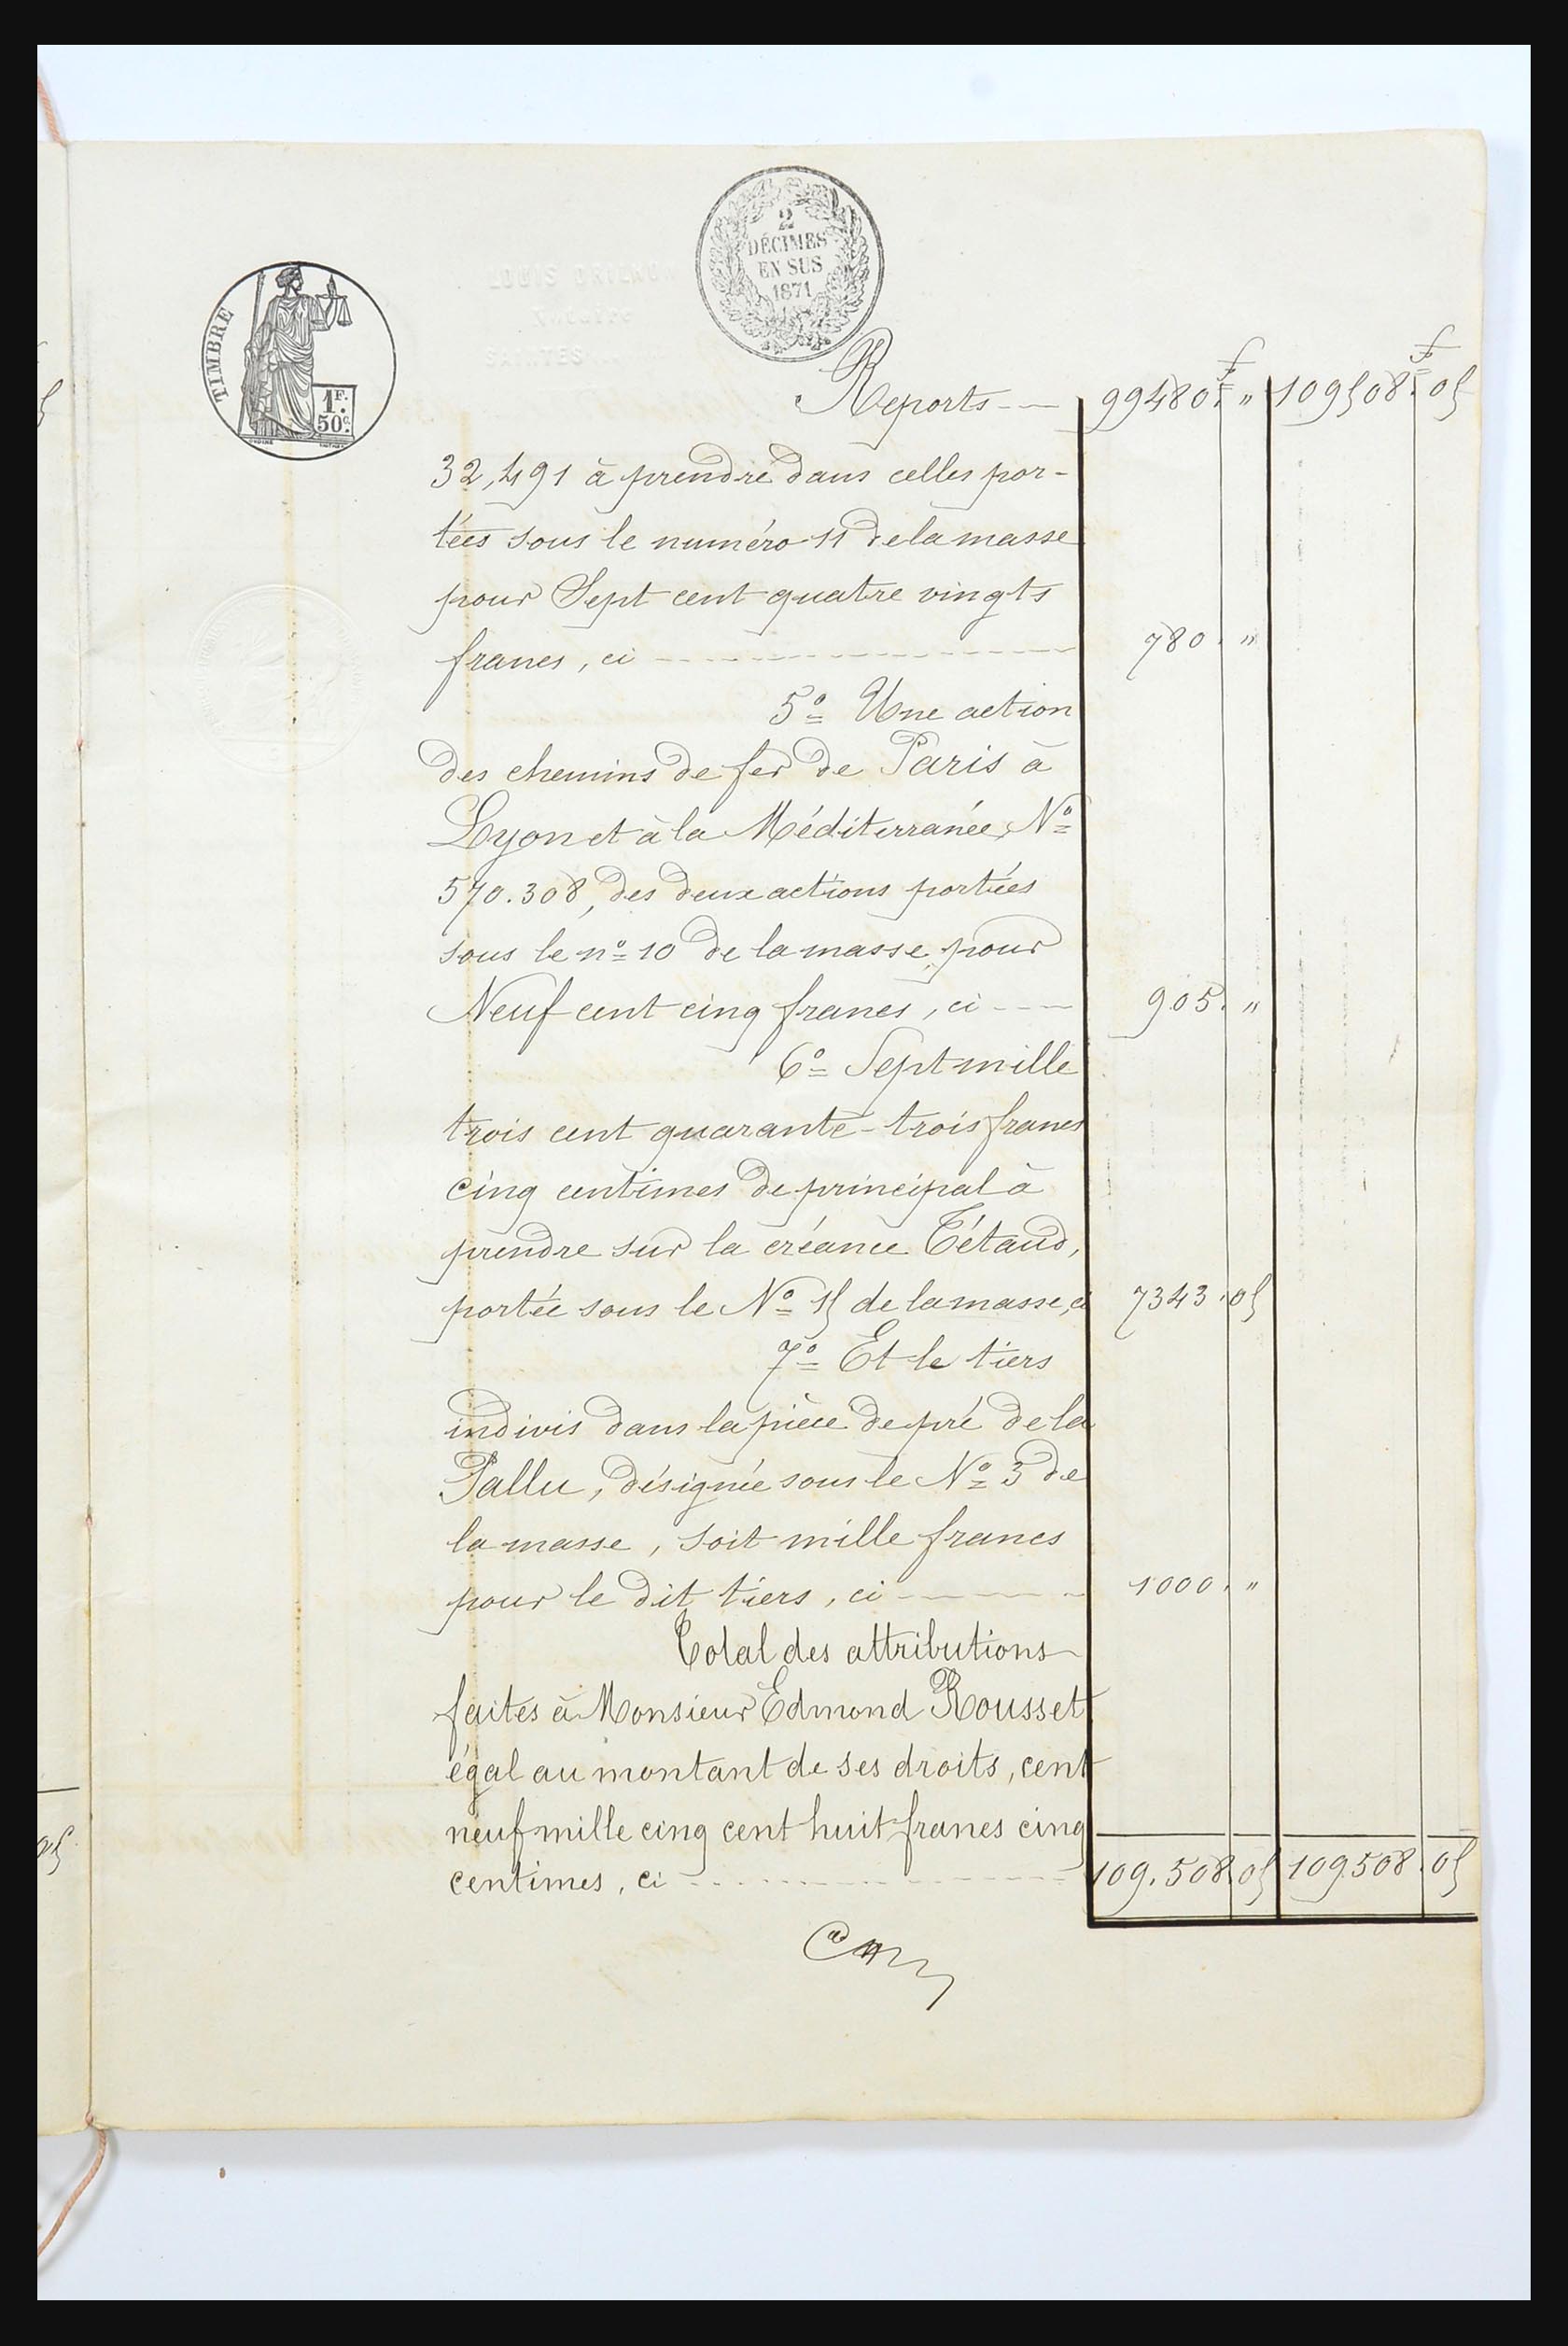 2
DÉCIMES
EN SUS
1871
TIMBRE
1F.
50c.
LOUIS
SAINTES
Reports -- 99480f. " 109508f. 05
32,491 à prendre dans celles por-
tées sous le numéro 11 de la masse
pour Sept cent quatre vingts
francs, ci 780. "
5º Une action
des chemins de fer de Paris à
Lyon et à la Méditerranée, Nº
570.308, des deux actions portées
sous le nº 10 de la masse, pour
Neuf cent cinq francs, ci 905. "
6º Sept mille
trois cent quarante-trois francs
cinq centimes de principal à
prendre sur la créance Tétaud,
portée sous le Nº 15 de la masse, ci 7343.05
7º Et le tiers
indivis dans la pièce de pré de la
Pallu, désignée sous le Nº 3 de
la masse, soit mille francs
pour le dit tiers, ci 1000. "
Total des attributions
faites à Monsieur Edmond Rousset
égal au montant de ses droits, cent
neuf mille cinq cent huit francs cinq
centimes, ci 109.508.05 109508.05